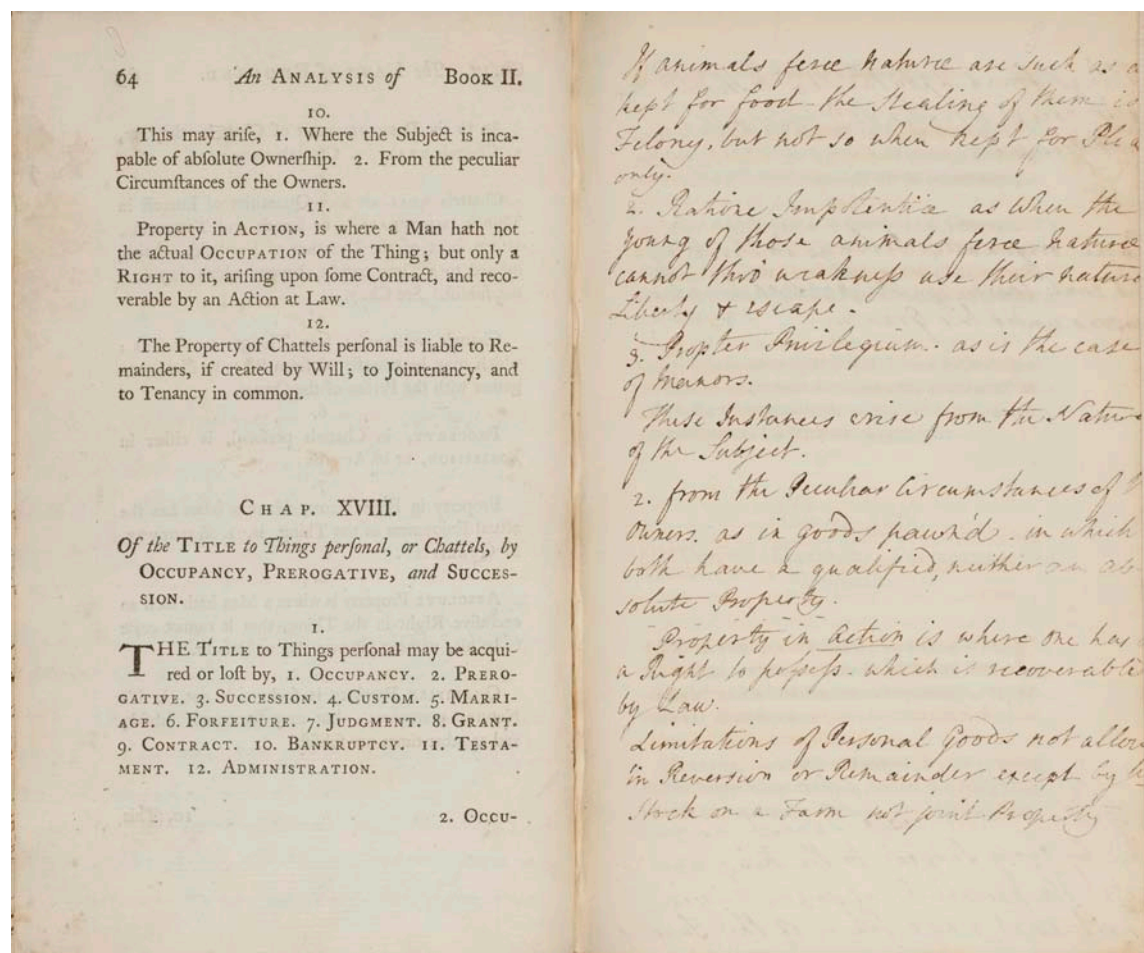 64 An ANALYSIS of BOOK II.
10.
This may ariſe, 1. Where the Subject is inca-
pable of abſolute Ownerſhip. 2. From the peculiar
Circumſtances of the Owners.
11.
Property in ACTION, is where a Man hath not
the actual OCCUPATION of the Thing; but only a
RIGHT to it, ariſing upon ſome Contract, and reco-
verable by an Action at Law.
12.
The Property of Chattels perſonal is liable to Re-
mainders, if created by Will; to Jointenancy, and
to Tenancy in common.
CHAP. XVIII.
Of the TITLE to Things perſonal, or Chattels, by
OCCUPANCY, PREROGATIVE, and SUCCES-
SION.
1.
THE TITLE to Things perſonal may be acqui-
red or loſt by, 1. OCCUPANCY. 2. PRERO-
GATIVE. 3. SUCCESSION. 4. CUSTOM. 5. MARRI-
AGE. 6. FORFEITURE. 7. JUDGMENT. 8. GRANT.
9. CONTRACT. 10. BANKRUPTCY. 11. TESTA-
MENT. 12. ADMINISTRATION.
2. OCCU-
If animals feræ naturæ are such as a
kept for food the Stealing of them is
Felony, but not so when kept for Plea
only.
2. Ratione Impotentiæ as when the
young of those animals feræ naturæ
cannot thro' weakneſs use their nature
Liberty & escape.
3. Propter Privilegium. as is the case
of manors.
These Instances arise from the Nature
of the Subject.
2. from the Peculiar Circumstances of
Owners. as in goods pawn'd. in which
both have a qualified, neither an ab
solute Property.
Property in Action is where one has
a Right to poſseſs. which is recoverable
by Law.
Limitations of Personal Goods not allow
in Reversion or Remainder except by
Stock on a Farm not joint Property